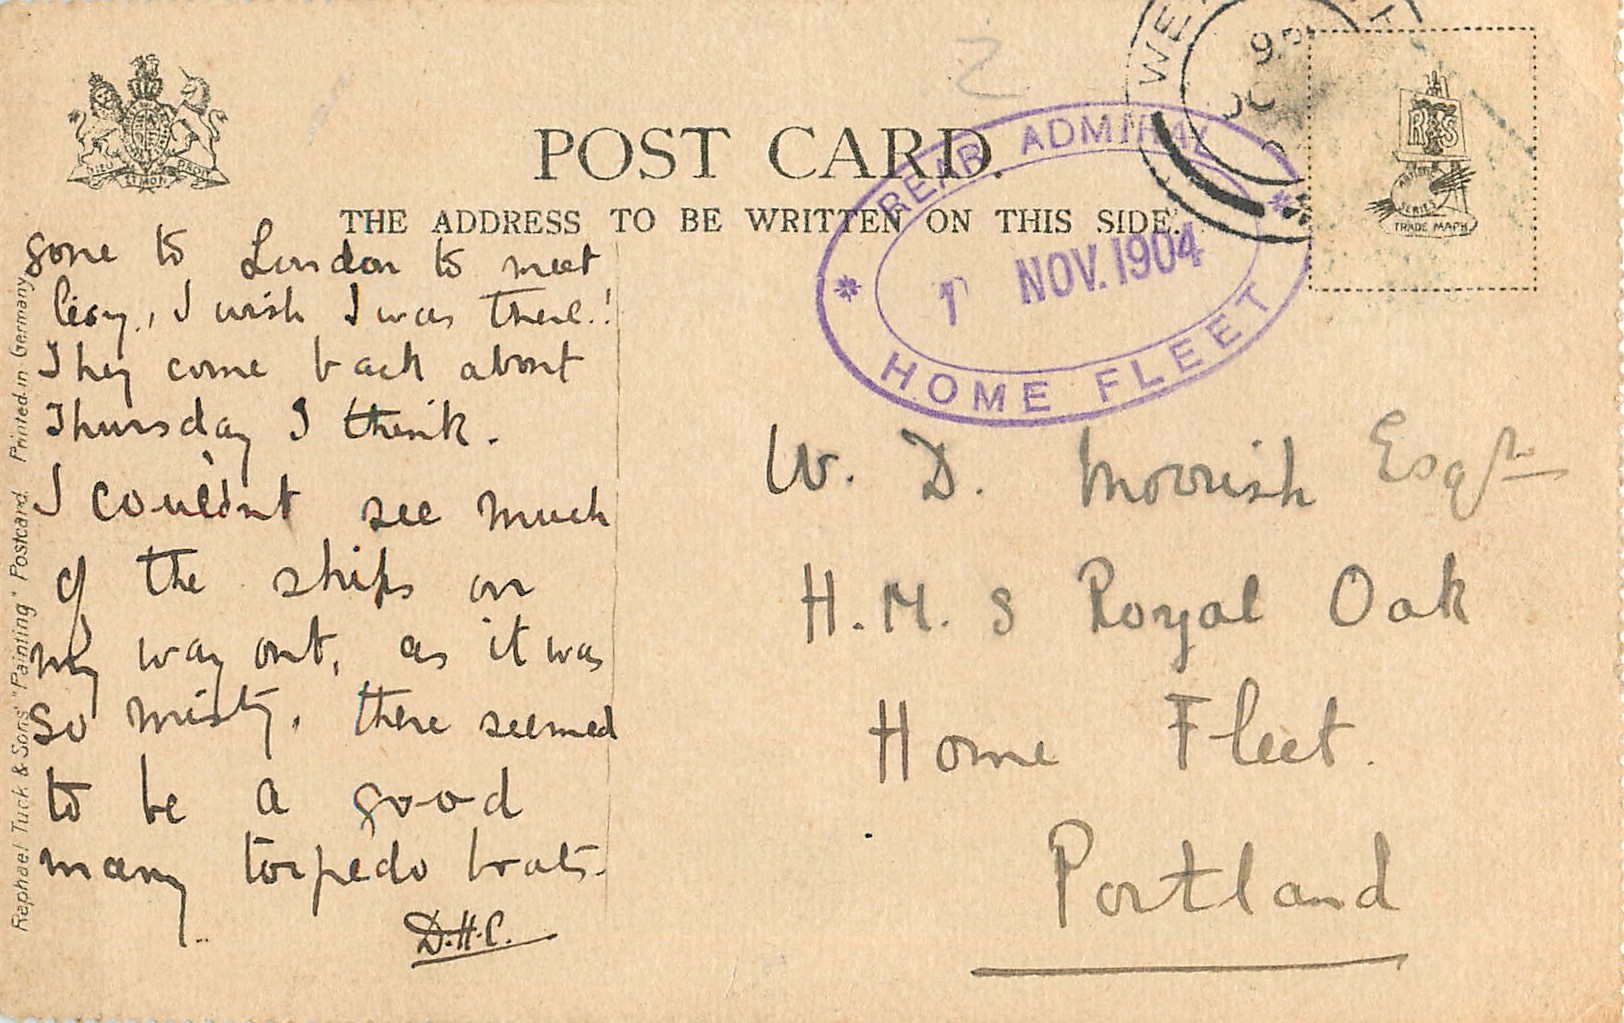 POST CARD.
THE ADDRESS TO BE WRITTEN ON THIS SIDE.
REAR ADMIRAL
1 NOV. 1904
HOME FLEET
R T S
SERIES
TRADE MARK
gone to London to meet
I wish I was there!!
They come back about
Thursday I think.
I couldn't see much
of the ships on
my way out, as it was
so misty, there seemed
to be a good
many torpedo boats.
D.H.C.
W. D. Morrish Esqre
H.M.S Royal Oak
Home Fleet.
Portland
Raphael Tuck & Sons' "Painting" Postcard. Printed in Germany